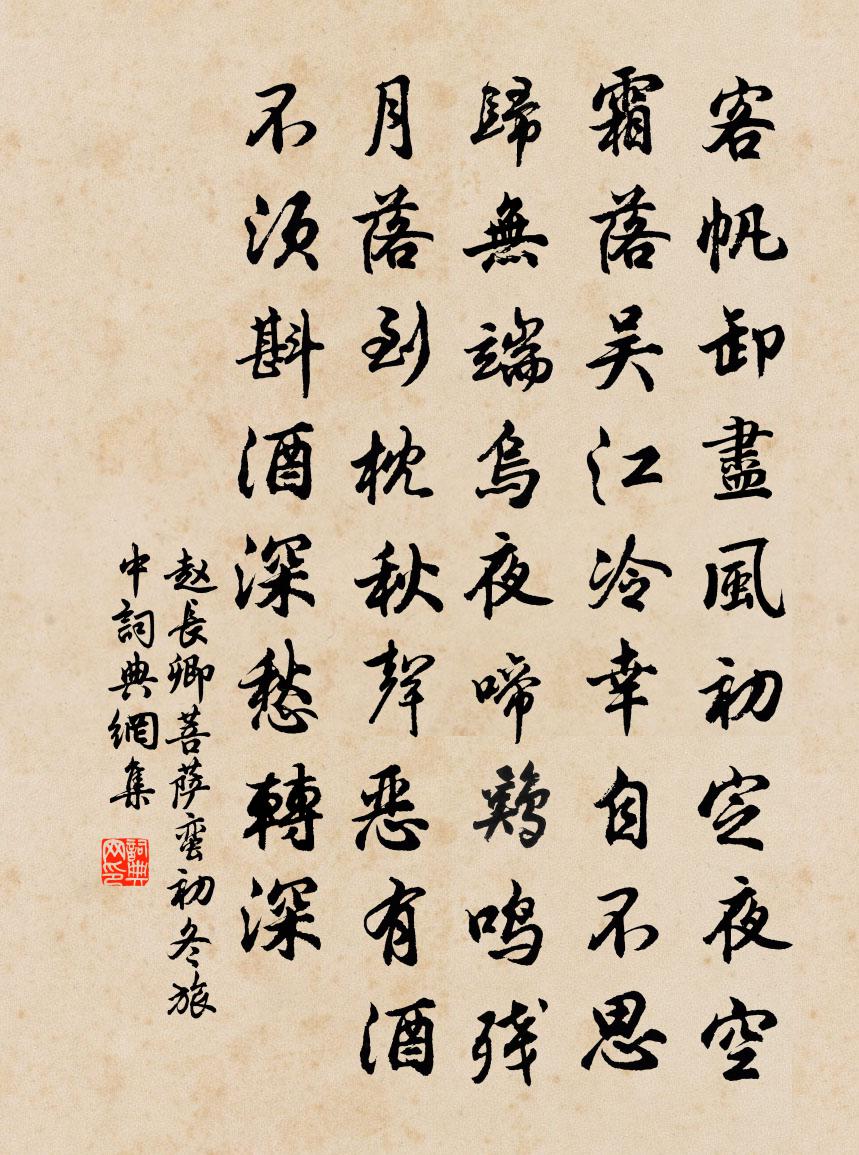 客帆卸盡風初定夜空
霜落吴江冷幸自不思
歸無端烏夜啼鷄鳴残
月落到枕秋聲惡有酒
不須斟酒深愁轉深
赵長卿菩萨蛮初冬旅
中詞典網集
詞典
网印